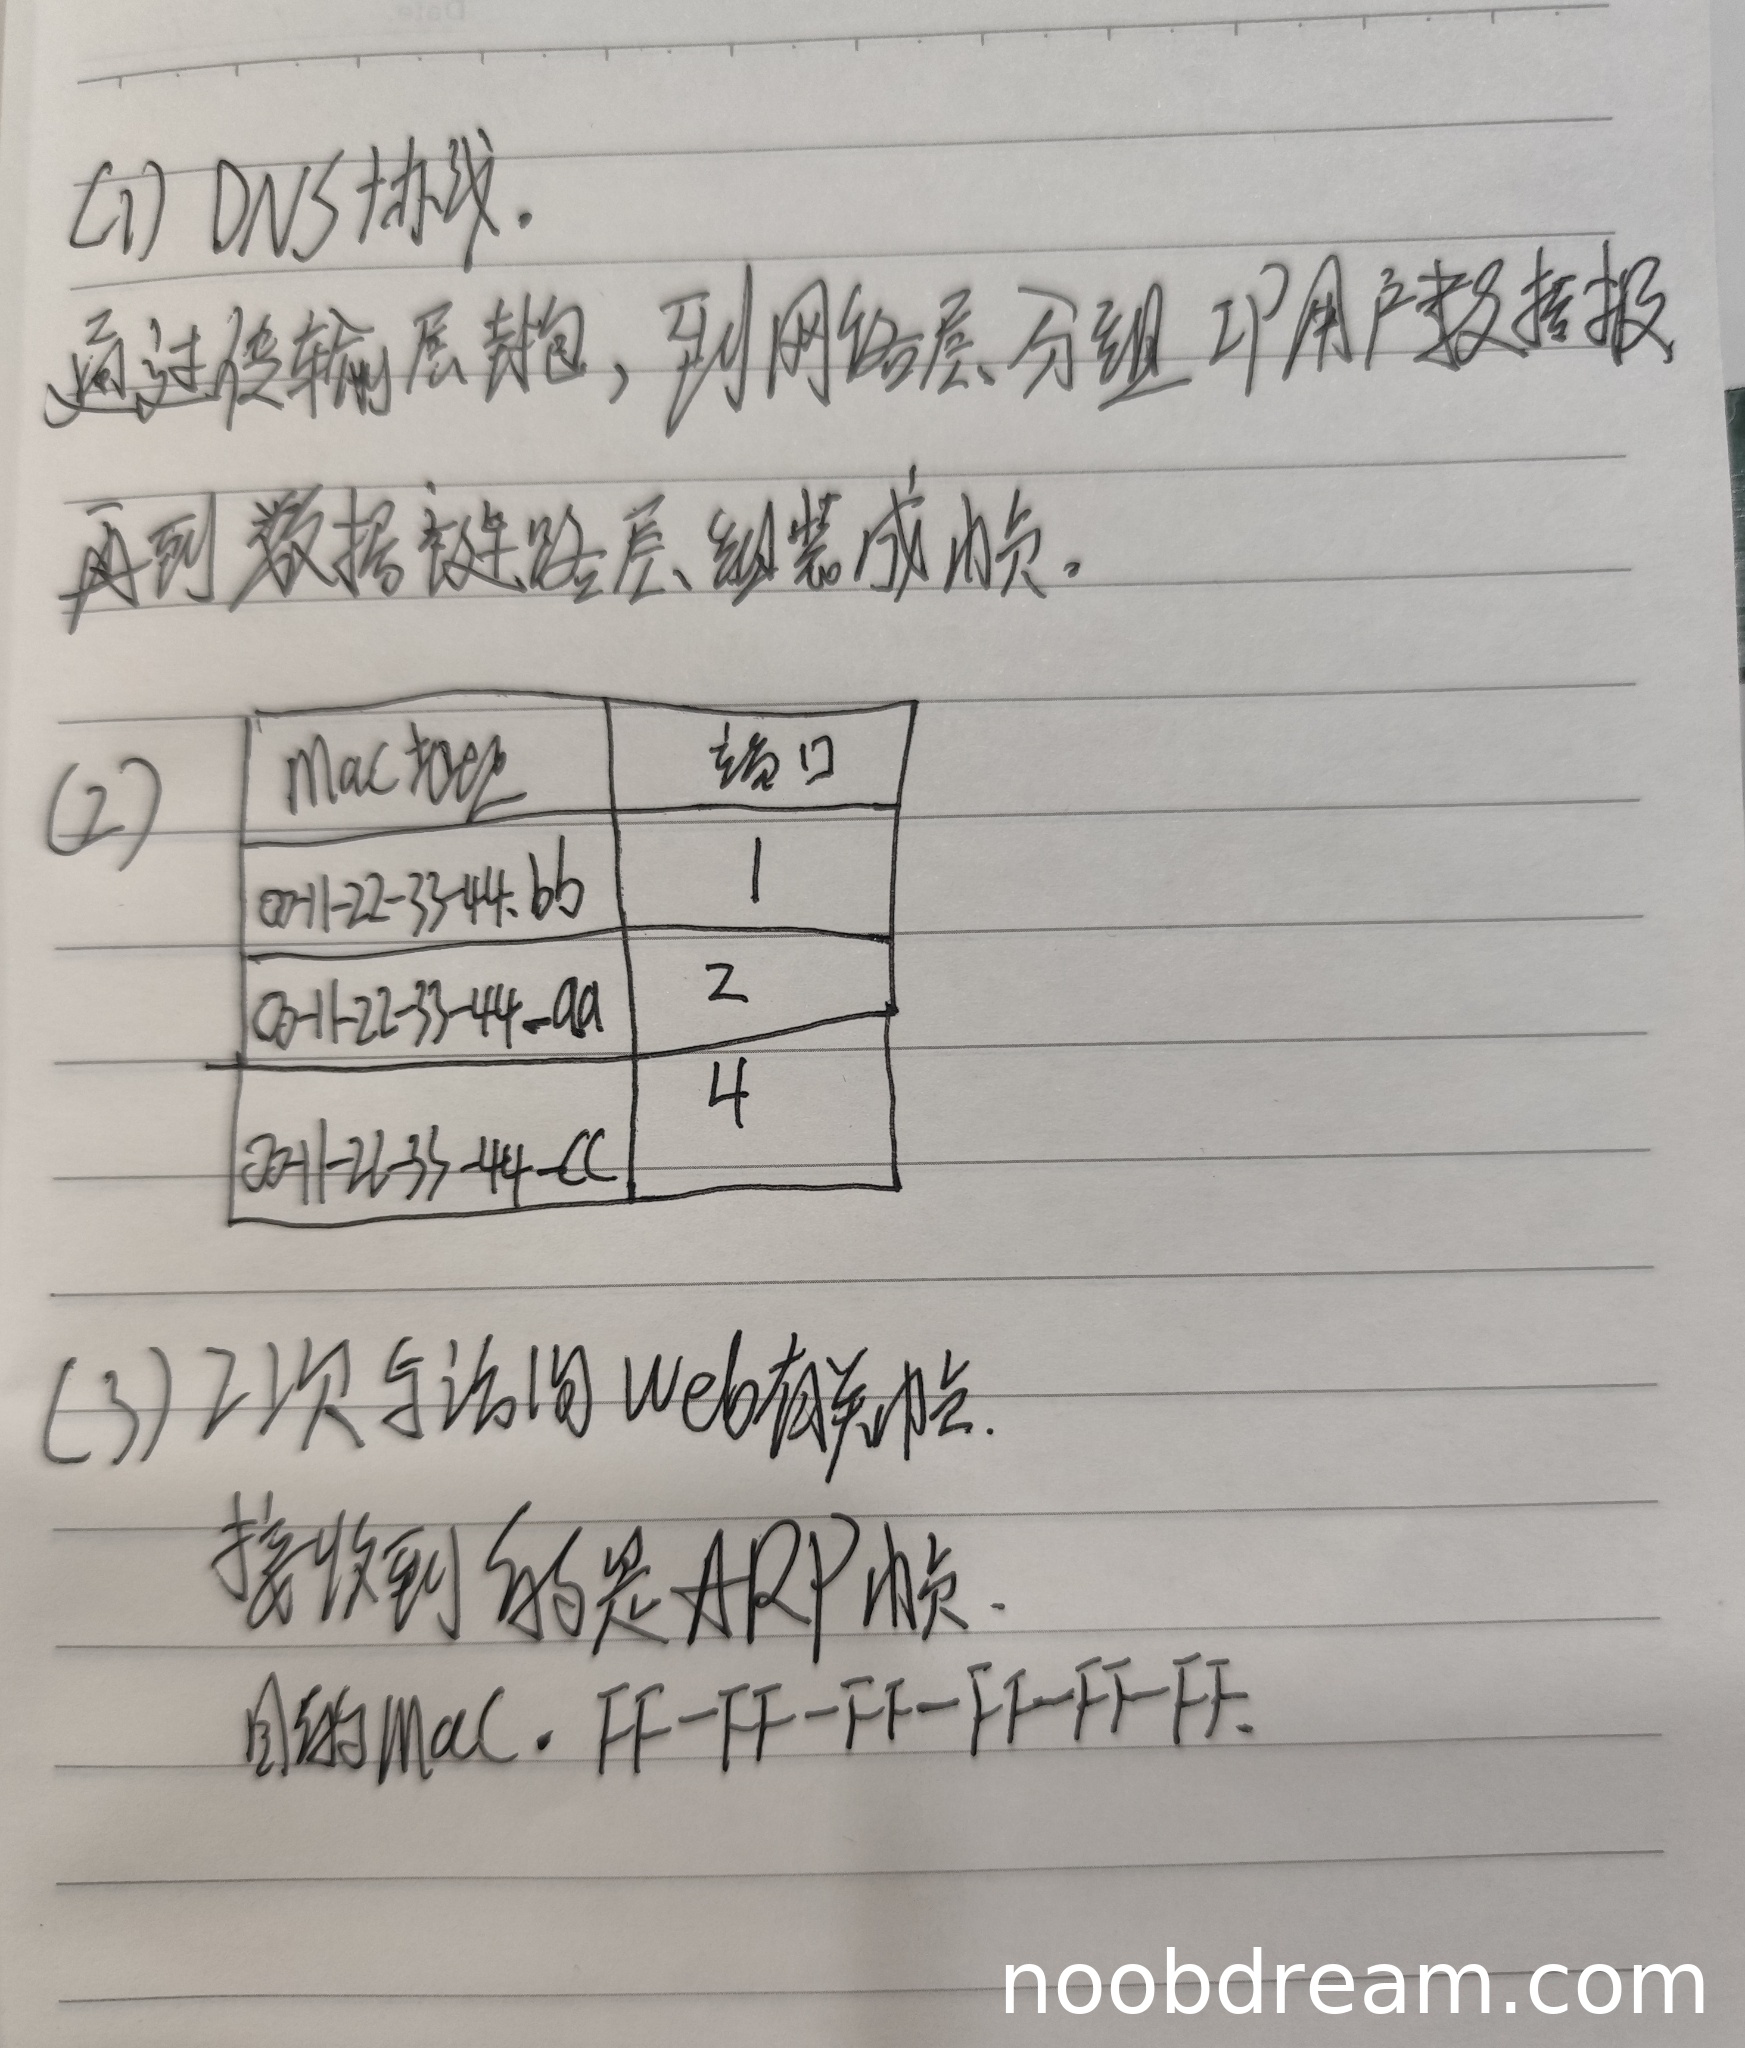 Date.
(1) DNS协议.
通过传输层封包，到网络层分组IP用户数据报，
再到数据链路层组装成帧。
(2)
Mac地址 端口
00-11-22-33-44-bb 1
00-11-22-33-44-aa 2
00-11-22-33-44-cc 4
(3) 21次与访问Web有关帧.
接收到的是ARP帧.
目的Mac. FF-FF-FF-FF-FF-FF.
noobdream.com